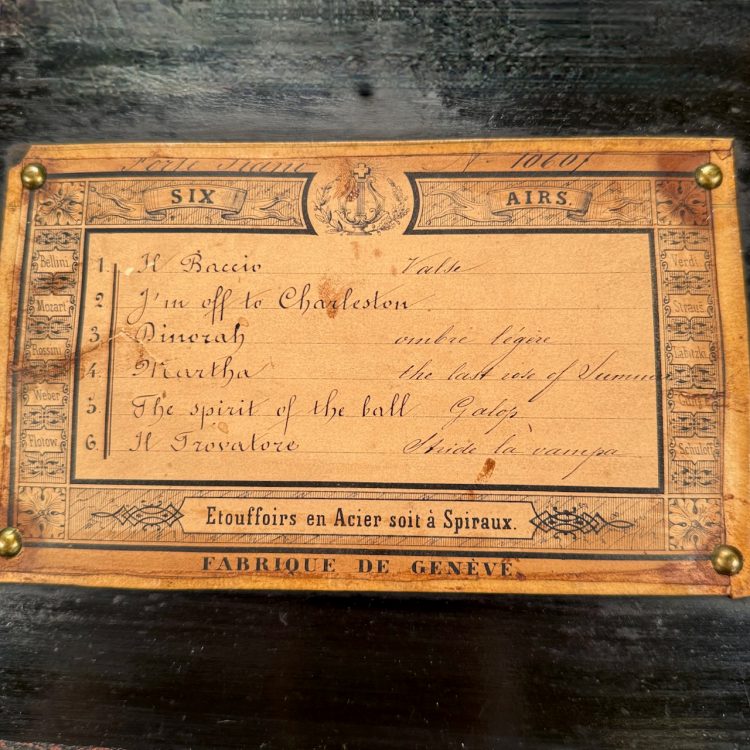 Forte Piano Nº 10601
SIX AIRS.
Bellini
Mozart
Rossini
Weber
Flotow
1. Il Baccio Valse
2 I'm off to Charleston
3 Dinorah ombre légère
4. Martha the last rose of Summer
5. The spirit of the ball Galop
6. Il Trovatore Stride la vampa
Verdi
Strauß
Labitzki
Schulof
Etouffoirs en Acier soit à Spiraux.
FABRIQUE DE GENÈVE.